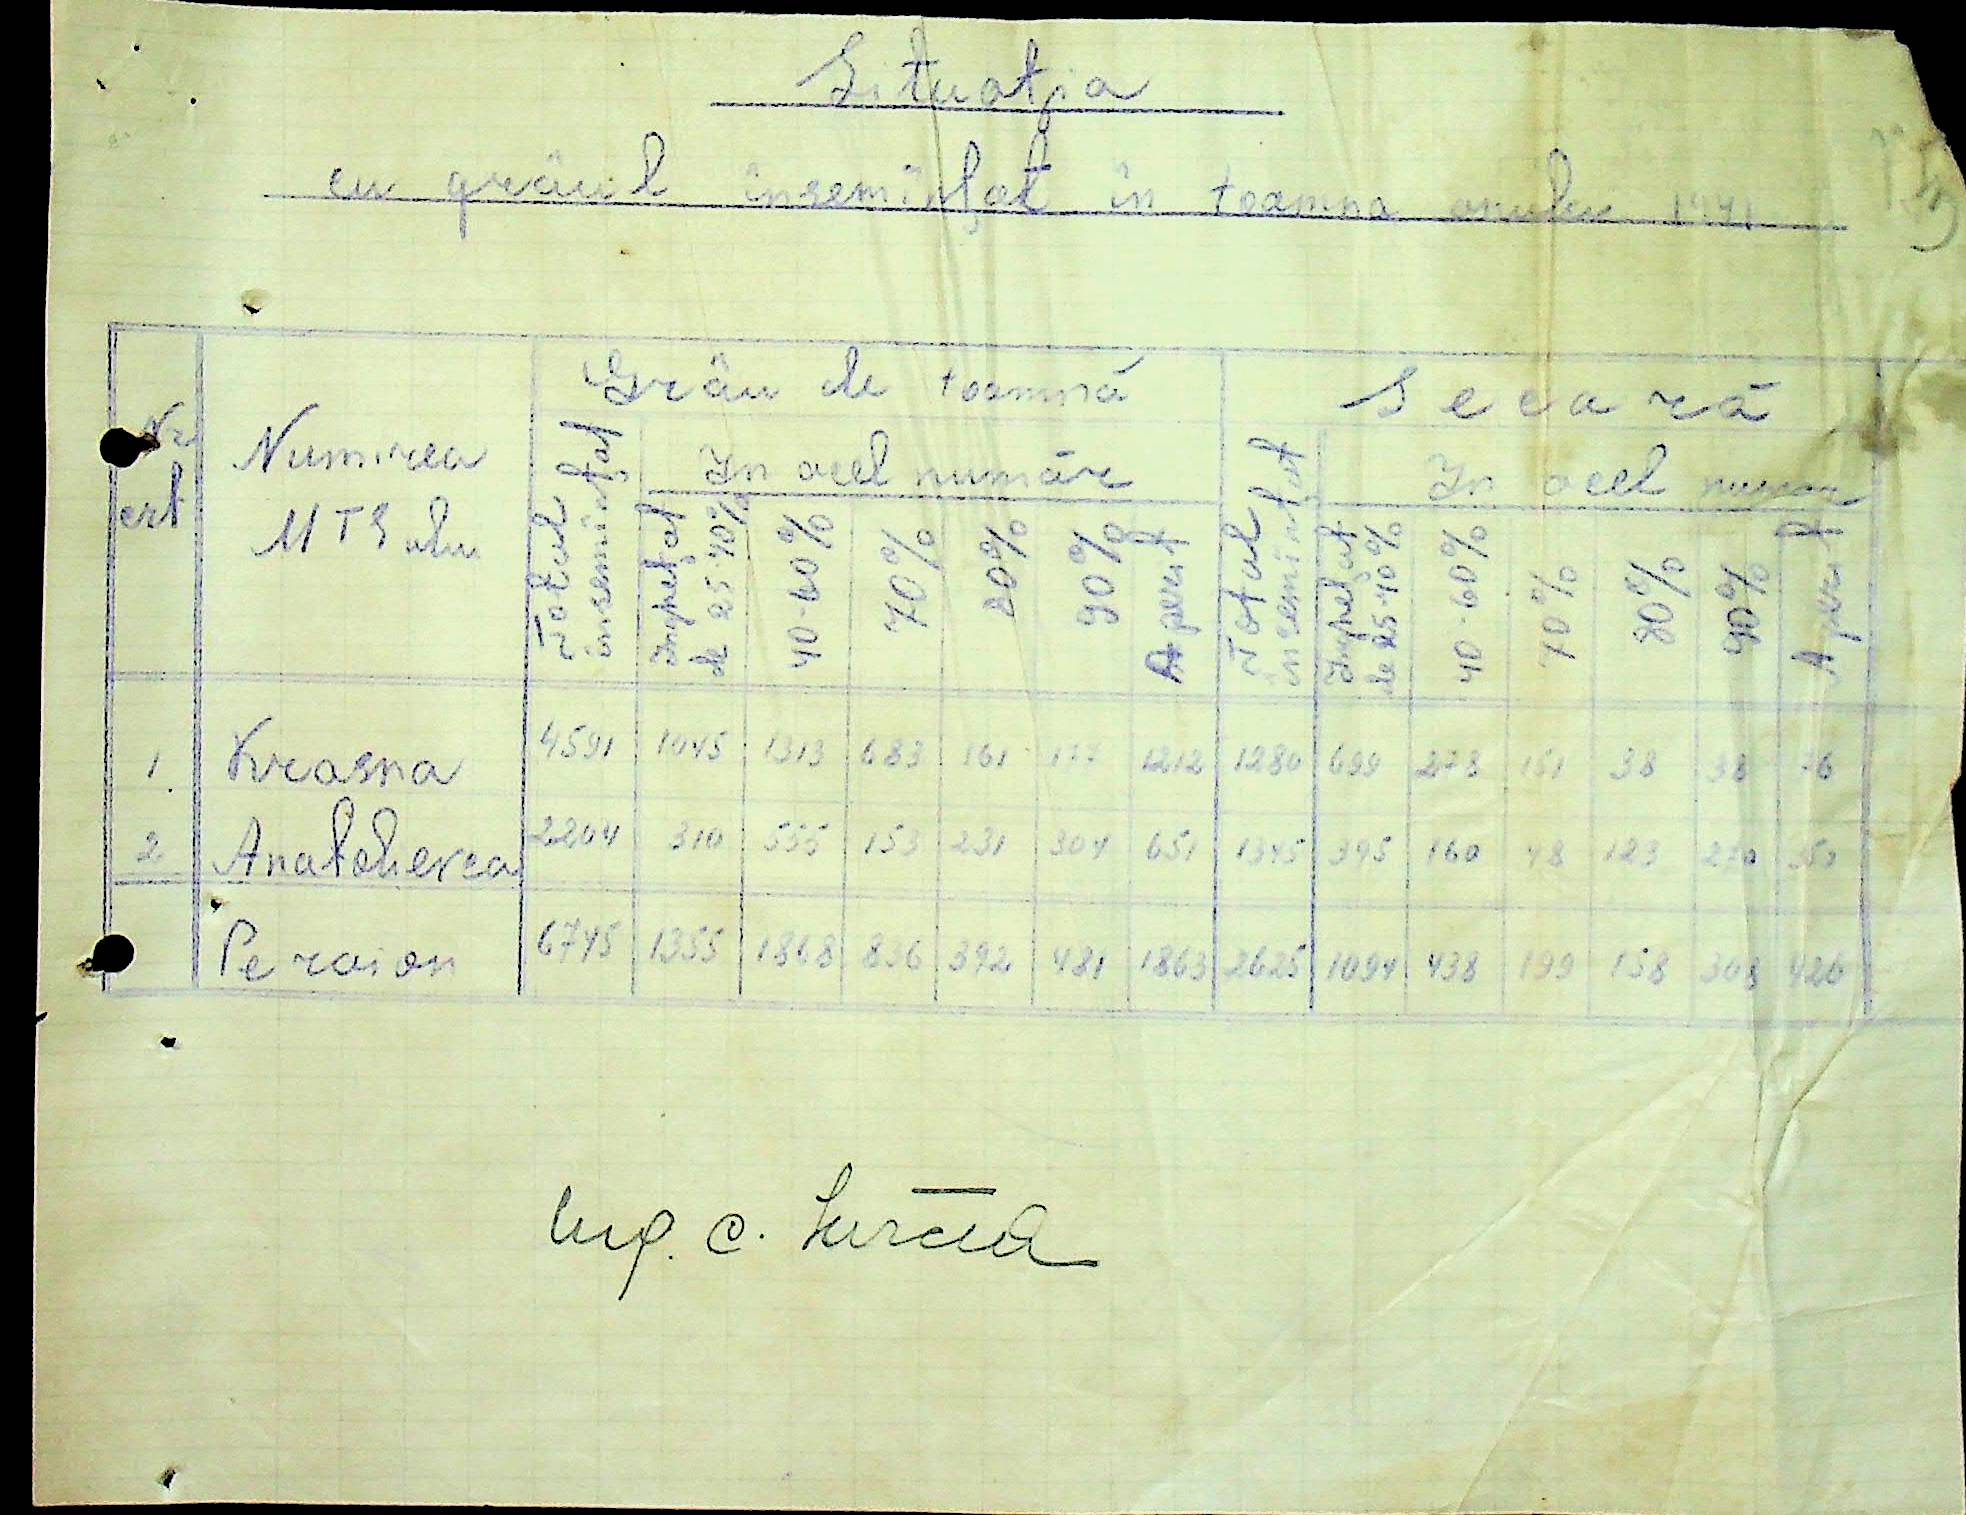 Situația
cu grâul însemințat în toamna anului 1941
Nr crt
Numirea MTS ului
Grâu de toamnă
Secară
Total însemințat
In acel număr
Total însemințat
In acel număr
Inspețat de 25-40% 40-60% 70% 80% 90% A perit
Inspețat de 25-40% 40-60% 70% 80% 90% A perit
1 Krasna 4591 1045 1313 683 161 177 1212 1280 699 278 151 38 38 76
2 Anatolievca 2204 310 555 153 231 304 651 1345 395 160 48 123 270 350
Pe raion 6745 1355 1868 836 392 481 1863 2625 1094 438 199 158 308 426
Ing. C.